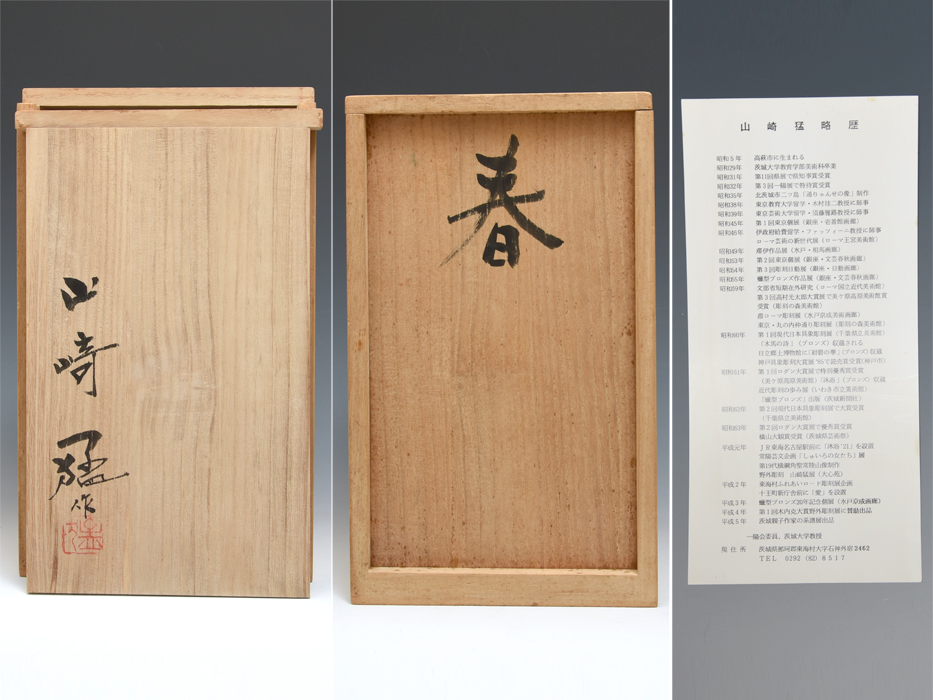 山崎猛作
春
山崎猛略歴
昭和5年 高萩市に生まれる
昭和29年 茨城大学教育学部美術科卒業
昭和31年 第11回県展で県知事賞受賞
昭和32年 第3回一陽展で特待賞受賞
昭和35年 北茨城市二ツ島「通りゃんせの像」制作
昭和38年 東京教育大学留学・木村珪二教授に師事
昭和39年 東京芸術大学留学・須藤雅路教授に師事
昭和45年 第1回東京個展(銀座・壱番館画廊)
昭和46年 伊政府給費留学・ファッツィーニ教授に師事
ローマ芸術の新世代展(ローマ王宮美術館)
昭和49年 滞伊作品展(水戸・相馬画廊)
昭和53年 第2回東京個展(銀座・文芸春秋画廊)
昭和54年 第3回彫刻日動展(銀座・日動画廊)
昭和55年 蠟型ブロンズ作品展(銀座・文芸春秋画廊)
昭和59年 文部省短期在外研究(ローマ国立近代美術館)
第3回高村光太郎大賞展で美ケ原高原美術館賞
受賞(彫刻の森美術館)
選ローマ彫刻展(水戸京成美術画廊)
東京・丸の内仲通り彫刻展(彫刻の森美術館)
昭和60年 第1回現代日本具象彫刻展(千葉県立美術館)
「木馬の詩」(ブロンズ)収蔵される
日立郷土博物館に「紺碧の響」(ブロンズ)収蔵
神戸具象彫刻大賞展'85で読売賞受賞(神戸市)
昭和61年 第1回ロダン大賞展で特別優秀賞受賞
(美ケ原高原美術館)「沐浴」(ブロンズ)収蔵
近代彫刻の歩み展(いわき市立美術館)
「蠟型ブロンズ」出版(茨城新聞社)
昭和62年 第2回現代日本具象彫刻展で大賞受賞
(千葉県立美術館)
昭和63年 第2回ロダン大賞展で優秀賞受賞
横山大観賞受賞(茨城県芸術祭)
平成元年 JR東海名古屋駅前に「沐浴'21」を設置
常陽芸文企画「しゅいろの女たち」展
第19代横綱角聖常陸山像制作
野外彫刻 山崎猛展(大心苑)
平成2年 東海村ふれあいロード彫刻展企画
十王町新庁舎前に「愛」を設置
平成3年 蠟型ブロンズ20年記念個展(水戸京成画廊)
平成4年 第1回木内克大賞野外彫刻展に賛助出品
平成5年 茨城獅子作家の系譜展出品
一陽会委員、茨城大学教授
現住所 茨城県那珂郡東海村大字石神外宿2462
TEL 0292(82)8517